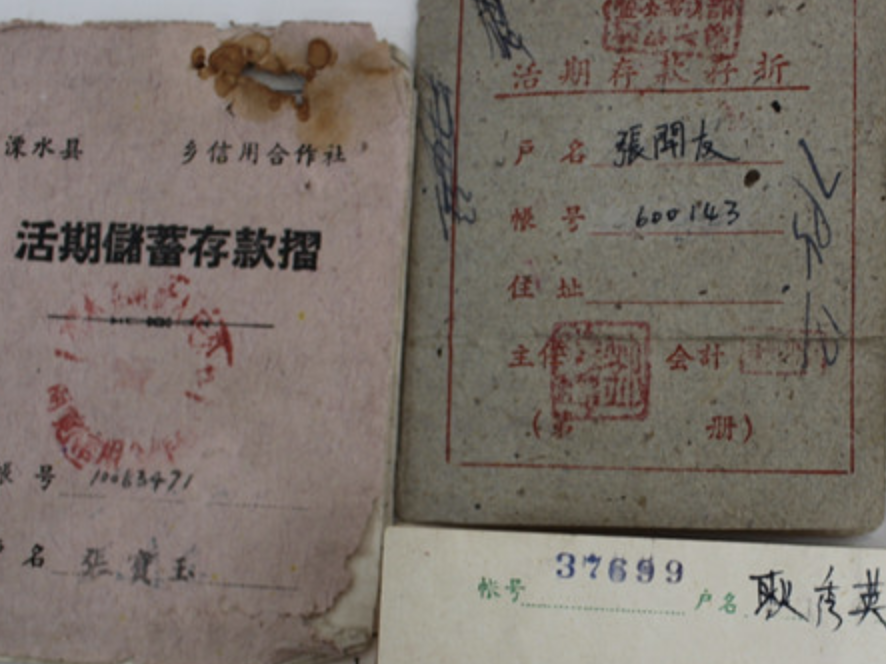 溧水县 乡信用合作社
活期儲蓄存款摺
信用
帐号 10063491
户名 張寶玉
活期存款存折
户名 張開友
帳号 600143
住址
主任 会計
(第 册)
帐号 37699 户名 耿秀英